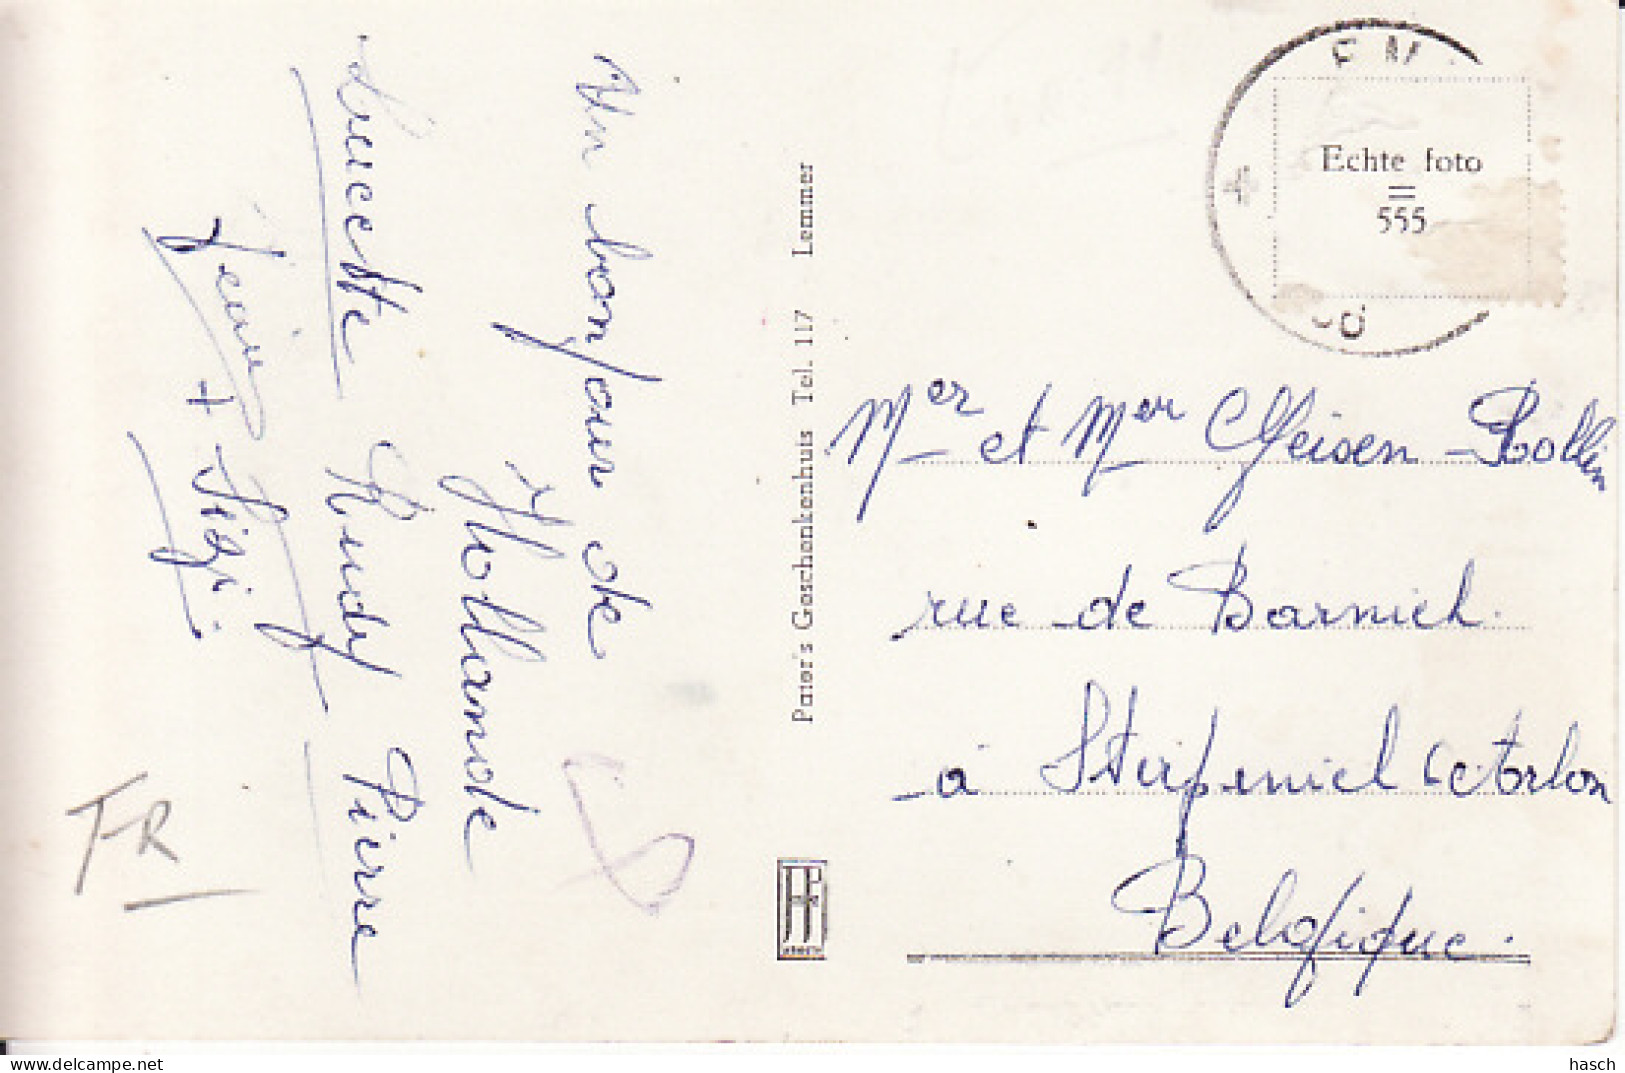 Un bonjour de
Hollande
Lucette Rudy Pierre
+ Sigi.
FR
Pater's Geschenkenhuis Tel. 117 - Lemmer
Echte foto
=
555
Mer et Mer Theisen-Rollin
rue de Barnich.
à Sterpenich Arlon
Belgique.
www.delcampe.net
hasch